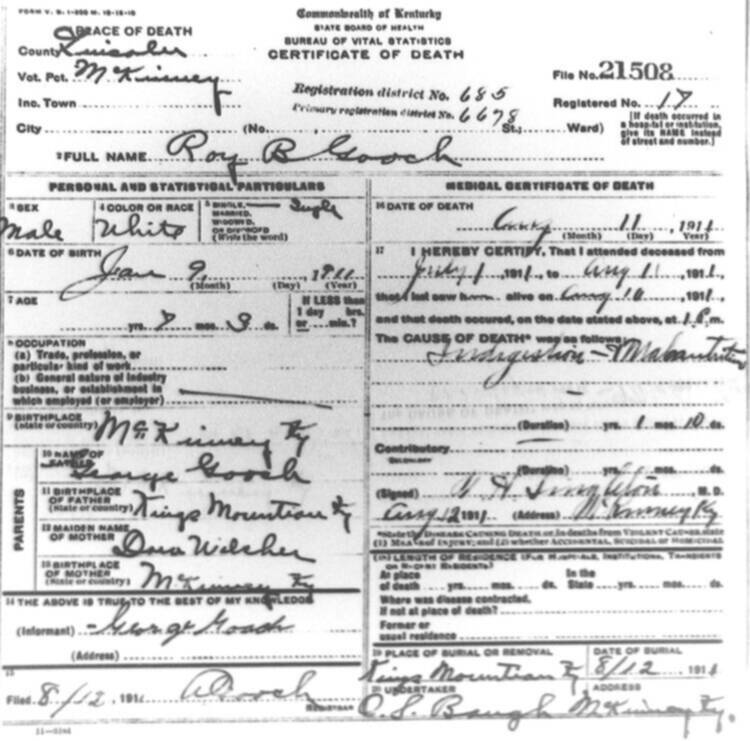 FORM V. S. 1-
Commonwealth of Kentucky
STATE BOARD OF HEALTH
BUREAU OF VITAL STATISTICS
CERTIFICATE OF DEATH
PLACE OF DEATH
County Lincoln
Vot. Pct. McKinney
Inc. Town
City (No. St.; Ward)
Registration district No. 685
Primary registration district No. 6678
File No. 21508
Registered No. 17
[If death occurred in a hospital or institution, give its NAME instead of street and number.]
2 FULL NAME Roy B Gooch
PERSONAL AND STATISTICAL PARTICULARS
3 SEX
Male
4 COLOR OR RACE
White
5 SINGLE, MARRIED, WIDOWED, OR DIVORCED
(Write the word)
Single
6 DATE OF BIRTH
Jan 9, 1911
(Month) (Day) (Year)
7 AGE
yrs. 7 mos. 3 ds.
If LESS than 1 day hrs. or min.?
8 OCCUPATION
(a) Trade, profession, or particular kind of work
(b) General nature of industry business, or establishment in which employed (or employer)
9 BIRTHPLACE
(state or country)
McKinney Ky
PARENTS
10 NAME OF FATHER
George Gooch
11 BIRTHPLACE OF FATHER
(State or country)
Kings Mountian Ky
12 MAIDEN NAME OF MOTHER
Dora
13 BIRTHPLACE OF MOTHER
(State or country)
McKinney Ky
14 THE ABOVE IS TRUE TO THE BEST OF MY KNOWLEDGE
(Informant) George Gooch
(Address)
15
Filed 8/12, 1911 Gooch
REGISTRAR
MEDICAL CERTIFICATE OF DEATH
16 DATE OF DEATH
Aug 11, 1911
(Month) (Day) (Year)
17 I HEREBY CERTIFY, That I attended deceased from
July 1, 1911, to Aug 11, 1911,
that I last saw him alive on Aug 10, 1911,
and that death occurred, on the date stated above, at 1 P.m.
The CAUSE OF DEATH* was as follows:
Indigestion & Malnutrition
(Duration) yrs. 1 mos. 10 ds.
Contributory
(Duration) yrs. mos. ds.
(Signed) Singleton, M. D.
Aug 12 1911 (Address) McKinney Ky
*State the DISEASE CAUSING DEATH, or in deaths from VIOLENT CAUSES, state (1) MEANS of INJURY; and (2) whether ACCIDENTAL, SUICIDAL or HOMICIDAL
LENGTH OF RESIDENCE (FOR HOSPITALS, INSTITUTIONS, TRANSIENTS OR RECENT RESIDENTS)
At place of death yrs. mos. ds. In the State yrs. mos. ds.
Where was disease contracted,
If not at place of death?
Former or usual residence
19 PLACE OF BURIAL OR REMOVAL
Kings Mountian Ky
DATE OF BURIAL
8/12, 1911
20 UNDERTAKER
C. S. Baugh
ADDRESS
McKinney Ky.